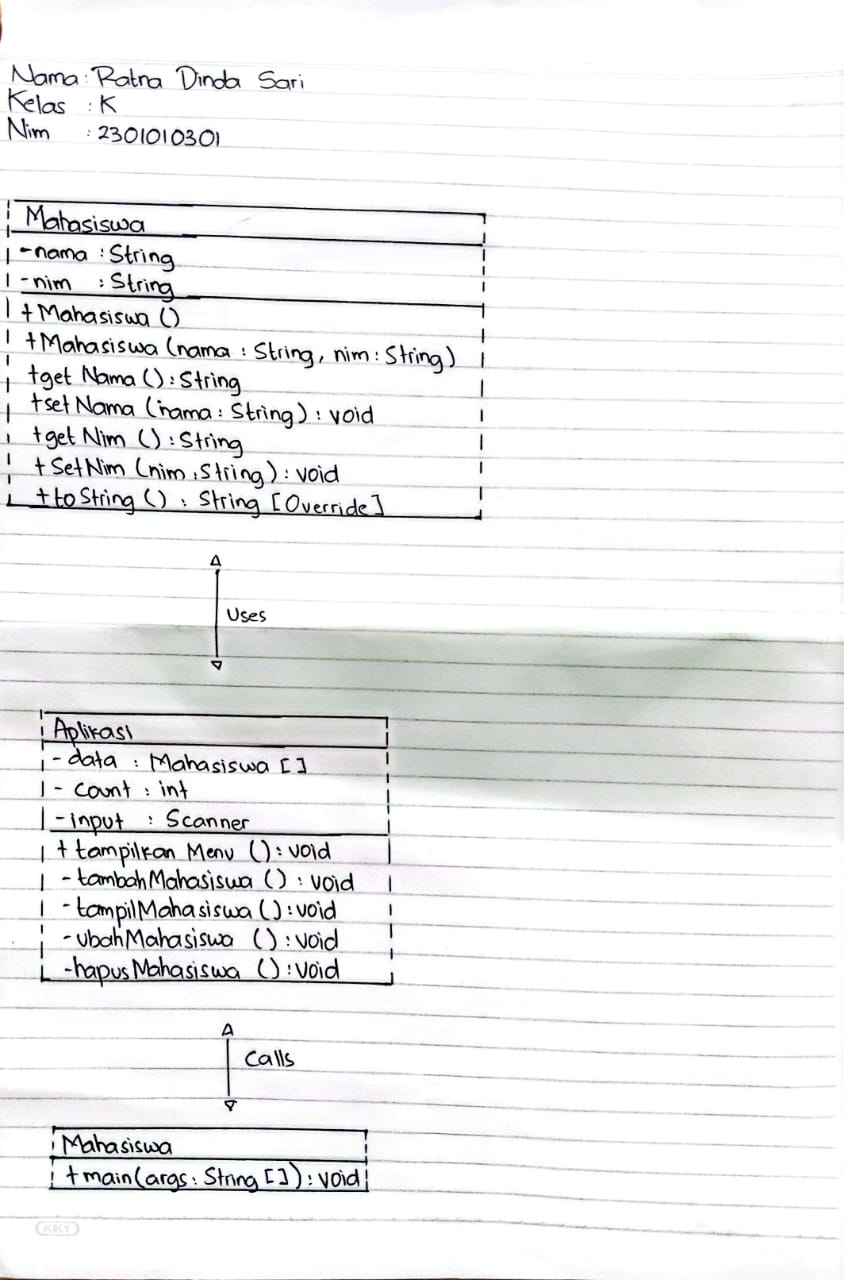 Nama : Ratna Dinda Sari
Kelas : K
Nim : 2301010301
Mahasiswa
-nama : String
-nim : String
+Mahasiswa ()
+Mahasiswa (nama : String, nim : String)
+get Nama () : String
+set Nama (nama : String) : void
+get Nim () : String
+SetNim (nim : String) : void
+to String () : String [Override]
Uses
Aplikasi
- data : Mahasiswa []
- count : int
-input : Scanner
+ tampilkan Menu () : void
-tambahMahasiswa () : void
-tampilMahasiswa () : void
-ubahMahasiswa () : void
-hapusMahasiswa () : void
Calls
Mahasiswa
+main(args : String []) : void
KKY